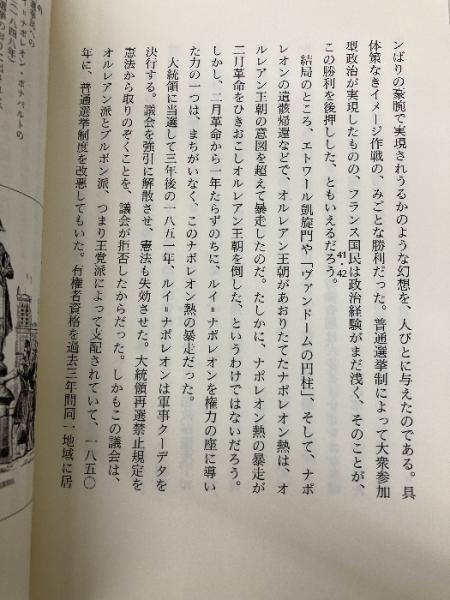 んばりの豪腕で実現されうるかのような幻想を、人びとに与えたのである。具
体策なきイメージ作戦の、みごとな勝利だった。普通選挙制によって大衆参加
型政治が実現したものの、フランス国民は政治経験がまだ浅く、そのことが、
この勝利を後押しした、ともいえるだろう。
41・42
結局のところ、エトワール凱旋門や「ヴァンドームの円柱」、そして、ナポ
レオンの遺骸帰還などで、オルレアン王朝があおりたてたナポレオン熱は、オ
ルレアン王朝の意図を超えて暴走したのだ。たしかに、ナポレオン熱の暴走が
二月革命をひきおこしオルレアン王朝を倒した、というわけではないだろう。
しかし、二月革命から一年たらずのちに、ルイ＝ナポレオンを権力の座に導い
た力の一つは、まちがいなく、このナポレオン熱の暴走だった。
大統領に当選して三年後の一八五一年、ルイ＝ナポレオンは軍事クーデタを
決行する。議会を強引に解散させ、憲法も失効させた。大統領再選禁止規定を
憲法から取りのぞくことを、議会が拒否したからだった。しかもこの議会は、
オルレアン派とブルボン派、つまり王党派によって支配されていて、一八五〇
年に、普通選挙制度を改悪してもいた。有権者資格を過去三年間同一地域に居
ルイ＝ナポレオン・ボナパルトの